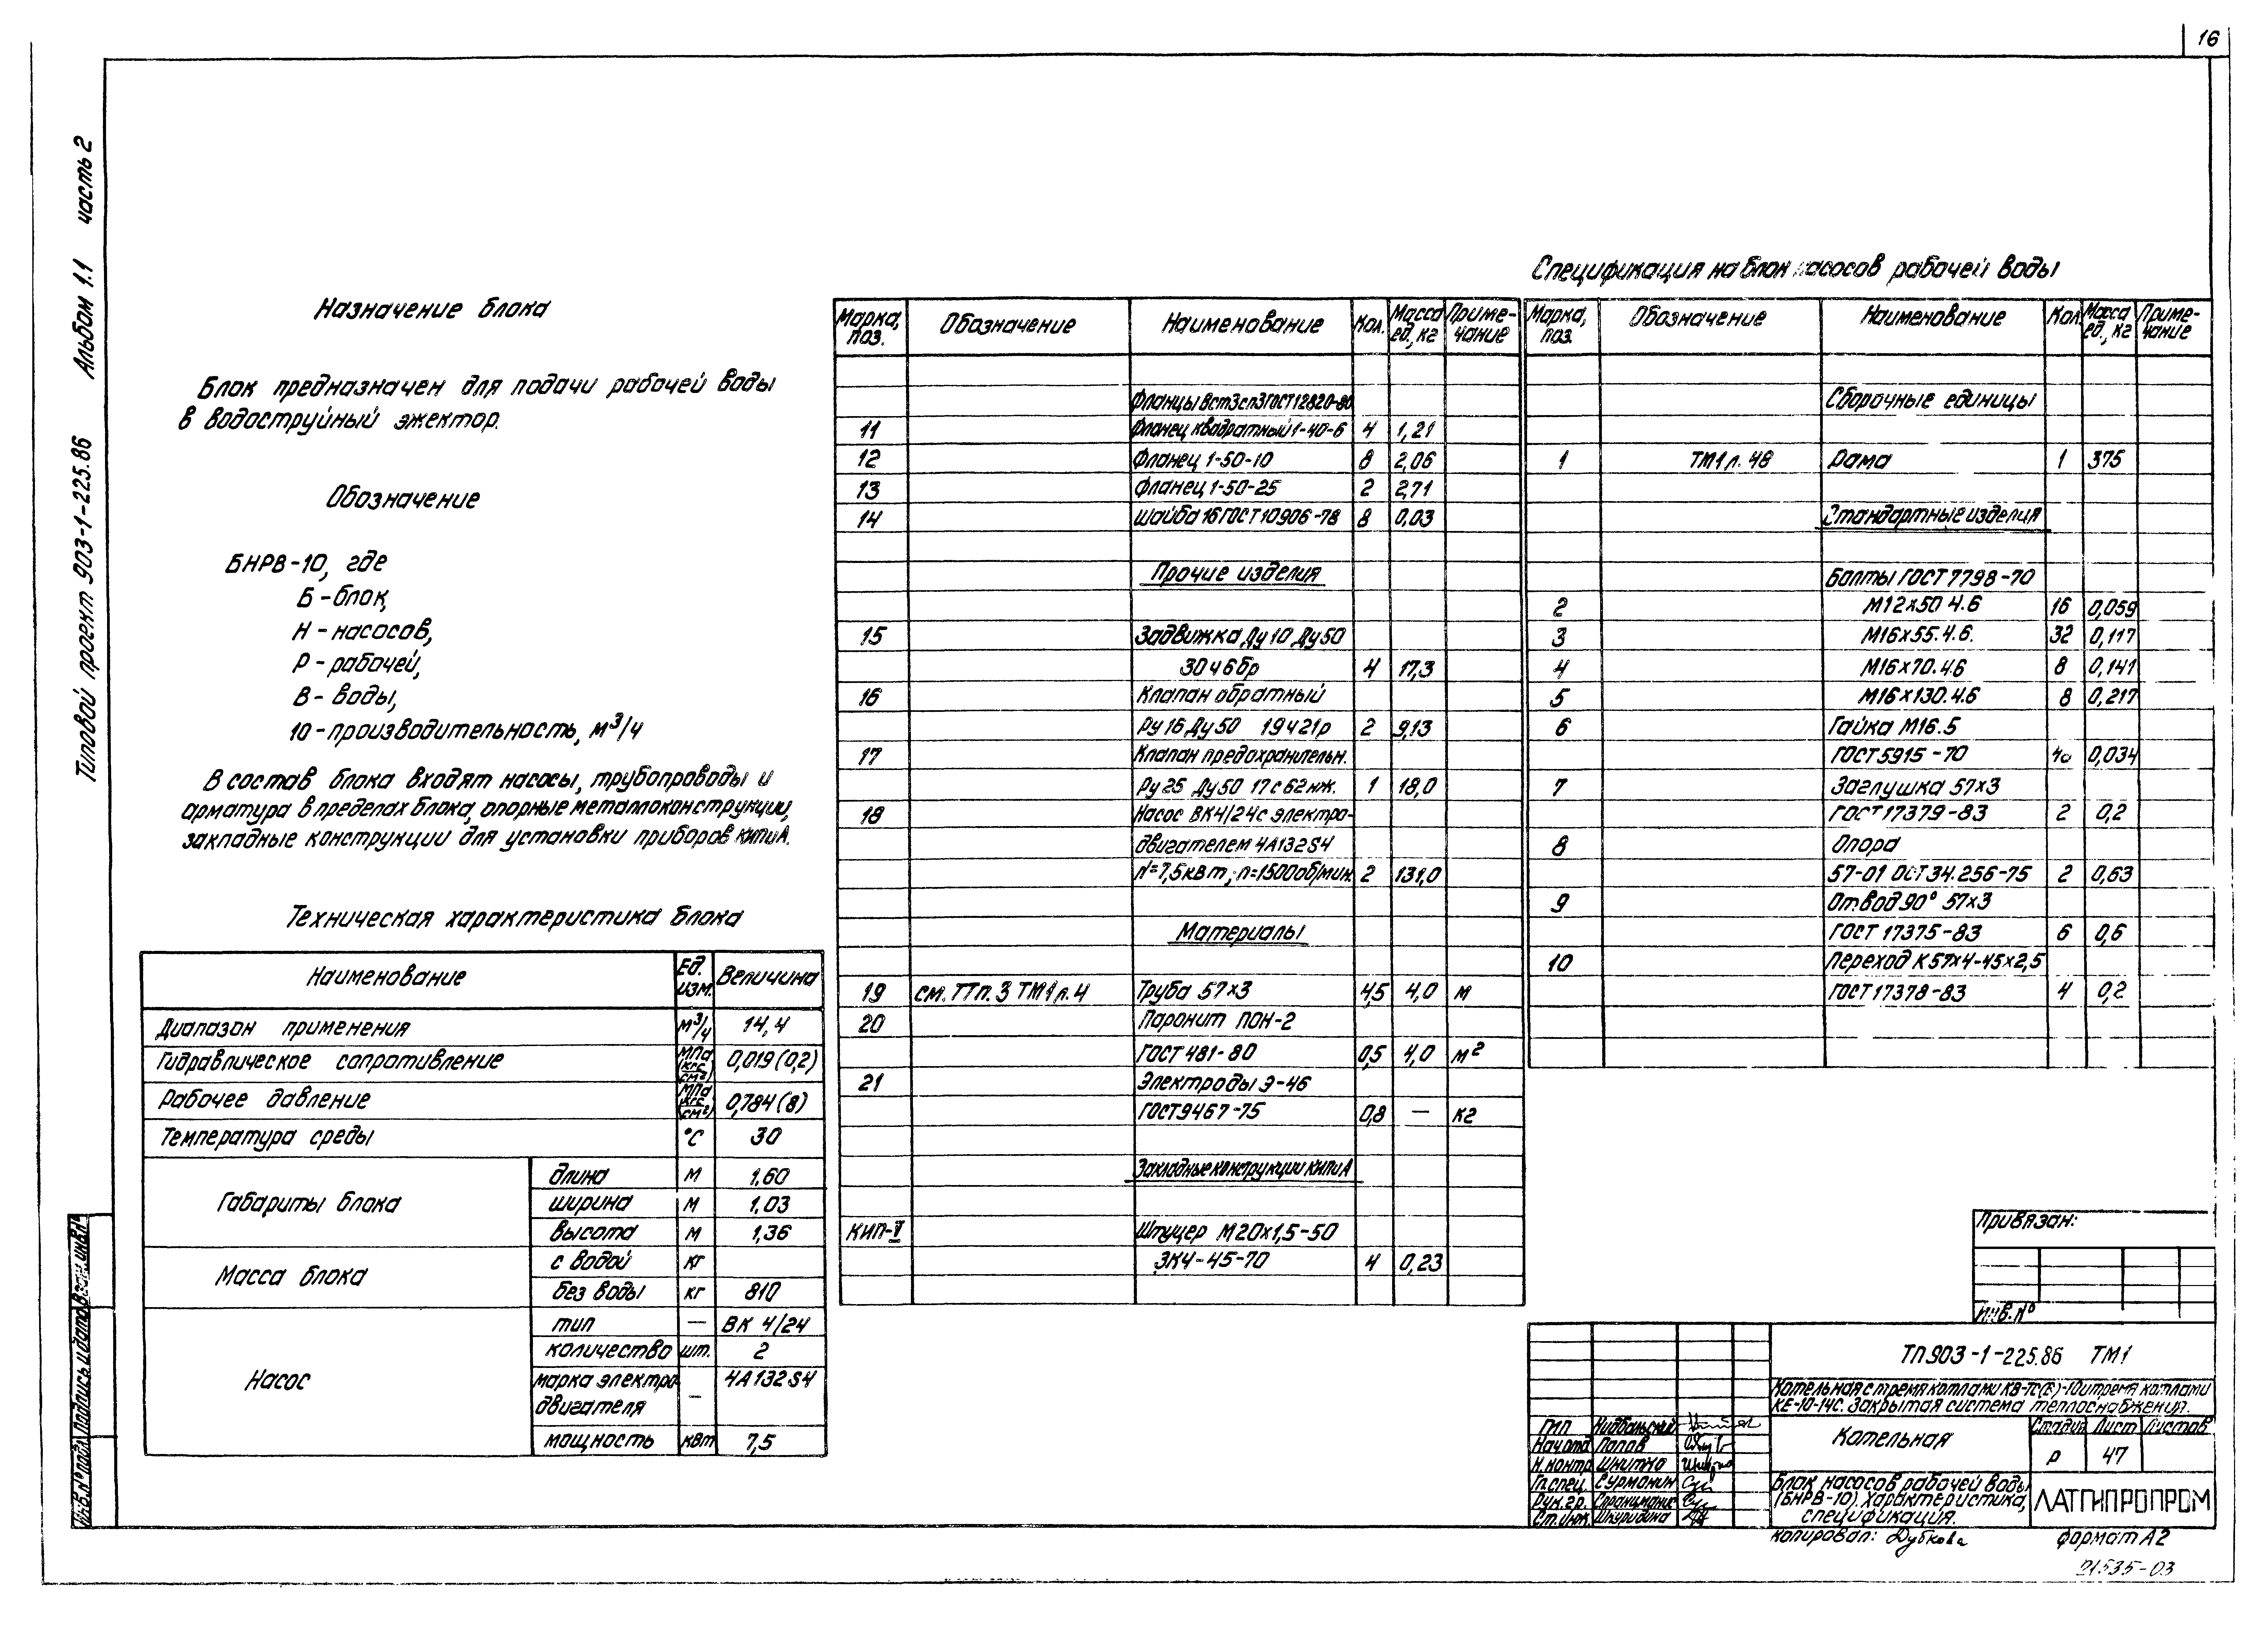 16
Типовой проект 903-1-225.86 Альбом 1.1 часть 2
Назначение блока
Блок предназначен для подачи рабочей воды
в водоструйный эжектор.
Обозначение
БНРВ-10, где
Б - блок,
Н - насосов,
Р - рабочей,
В - воды,
10 - производительность, м³/ч
В состав блока входят насосы, трубопроводы и
арматура в пределах блока, опорные металлоконструкции,
закладные конструкции для установки приборов КИПиА.
Техническая характеристика блока
Наименование Ед. изм. Величина
Диапазон применения м³/ч 14,4
Гидравлическое сопративление МПа (кгс/см²) 0,019 (0,2)
Рабочее давление МПа (кгс/см²) 0,784 (8)
Температура среды °С 30
Габариты блока длина м 1,60
ширина м 1,03
высота м 1,36
Масса блока с водой кг
без воды кг 810
Насос тип — ВК 4/24
количество шт. 2
марка электро- — 4А132S4
двигателя
мощность кВт 7,5
Спецификация на блок насосов рабочей воды
Марка, поз. Обозначение Наименование Кол. Масса ед., кг Приме-чание
Фланцы Вст3сп3 ГОСТ 12820-80
11 Фланец квадратный 1-40-6 4 1,21
12 Фланец 1-50-10 8 2,06
13 Фланец 1-50-25 2 2,71
14 Шайба 16 ГОСТ 10906-78 8 0,03
Прочие изделия
15 Задвижка Ду 10 Ду 50
30ч6бр 4 17,3
16 Клапан обратный
Ру 16 Ду 50 19ч21р 2 9,13
17 Клапан предохранительн.
Ру 25 Ду 50 17с62нж. 1 18,0
18 Насос ВК4/24 с электро-
двигателем 4А132S4
N=7,5 кВт; n=1500 об/мин. 2 131,0
Материалы
19 см. ТТ п. 3 ТМ1 л. 4 Труба 57×3 4,5 4,0 м
20 Паронит ПОН-2
ГОСТ 481-80 0,5 4,0 м²
21 Электроды Э-46
ГОСТ 9467-75 0,8 — кг
Закладные конструкции КИПиА
КИП-V Штуцер М20×1,5-50
ЗК4-45-70 4 0,23
Марка, поз. Обозначение Наименование Кол. Масса ед., кг Приме-чание
Сборочные единицы
1 ТМ1 л. 48 Рама 1 375
Стандартные изделия
Болты ГОСТ 7798-70
2 М12×50 4.6 16 0,059
3 М16×55.4.6. 32 0,117
4 М16×70.46 8 0,141
5 М16×130.46 8 0,217
6 Гайка М16.5
ГОСТ 5915-70 40 0,034
7 Заглушка 57×3
ГОСТ 17379-83 2 0,2
8 Опора
57-01 ОСТ 34.256-75 2 0,63
9 Отвод 90° 57×3
ГОСТ 17375-83 6 0,6
10 Переход К 57×4-45×2,5
ГОСТ 17378-83 4 0,2
Привязан:
Инв. №
ТП 903-1-225.86 ТМ1
Котельная с тремя котлами КВ-ТС(В)-10 и тремя котлами
КЕ-10-14С. Закрытая система теплоснабжения.
ГИП Нидбальский
Нач.отд. Попов
Н.контр. Шнитко
Гл.спец. Сурмонин
Рук.гр. Спранцманис
Ст.инж. Шкуридина
Котельная
Стадия Лист Листов
Р 47
Блок насосов рабочей воды
(БНРВ-10). Характеристика,
спецификация.
ЛАТГИПРОПРОМ
Копировал: Дубкова
Формат А2
21535-03
Инв.№ подл. Подпись и дата Взам.инв.№